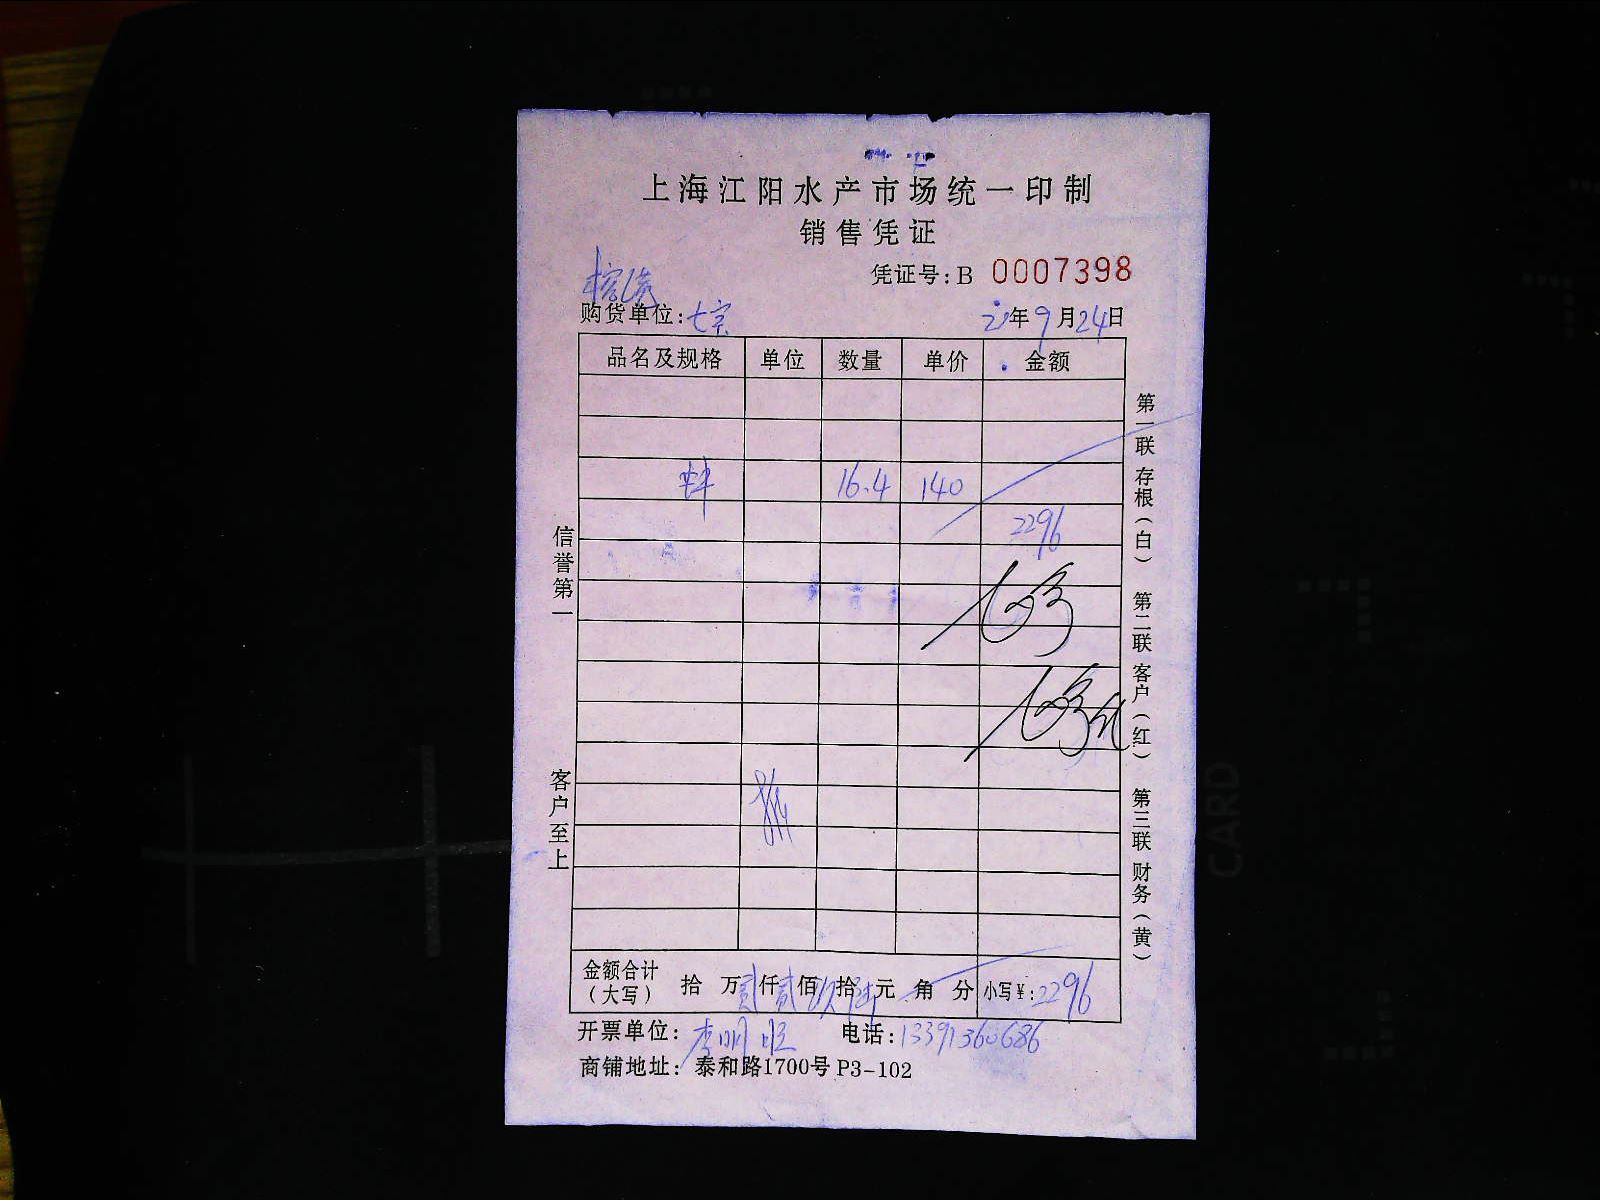 上海江阳水产市场统一印制
销售凭证
凭证号:B 0007398
购货单位:七宗
年9月24日
品名及规格 单位 数量 单价 金额
蚌 16.4 140
2296
金额合计(大写) 拾 万贰仟贰佰玖拾陆元 角 分 小写¥:2296
开票单位:李明 电话:13391360686
商铺地址:泰和路1700号P3-102
信誉第一
客户至上
第一联 存根(白) 第二联 客户(红) 第三联 财务(黄)
CARD